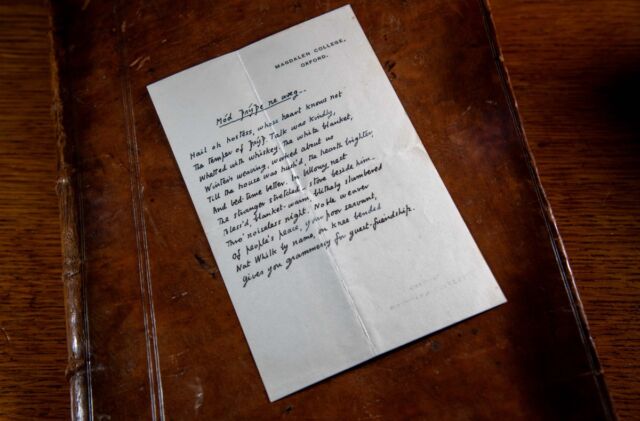 MAGDALEN COLLEGE,
OXFORD.
Mód Þrýþe ne wæg...
Hail oh hostess, whose heart knows not
The temper of Þrýþ. Talk was kindly,
Whetted with whiskey, the white blanket,
Winter's weaving, about us
Till the house was hush'd, the hearth brighter,
And bed-time better. In billowy nest
The stranger stretched, stove beside him,
Bless'd, blanket-warm, blithely slumbered
Thro' noiseless night. Noble weaver
Of people's peace, your poor servant,
Nat Whilk by name, on knee bended
gives you grammercy for guest-friendship.